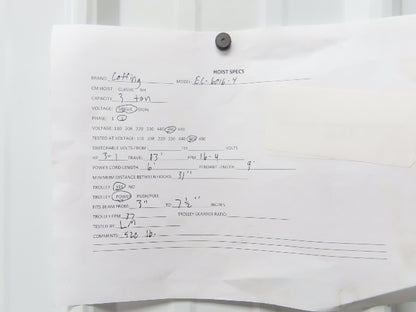 HOIST SPECS
BRAND Coffing MODEL: EC-6016-4
CM HOIST: CLASSIC NH
CAPACITY 3 ton
VOLTAGE: SINGLE DUAL
PHASE: 1 3
VOLTAGE: 110 208 220 230 440 460 480
TESTED AT VOLTAGE: 110 208 220 230 440 460 480
SWITCHABLE VOLTS-FROM VOLTS
HP 3-1 TRAVEL 13' FPM 16-4
POWER CORD LENGTH 6' PENDANT LENGTH 9'
MINIMUM DISTANCE BETWEEN HOOKS: 31"
TROLLEY YES NO
TROLLEY POWER PUSH/PULL
FITS BEAM FROM: 3" TO 7 1/2" INCHES
TROLLEY FPM TROLLEY GEARED RATIO:
TESTED BY LM
COMMENTS: 520 lb.